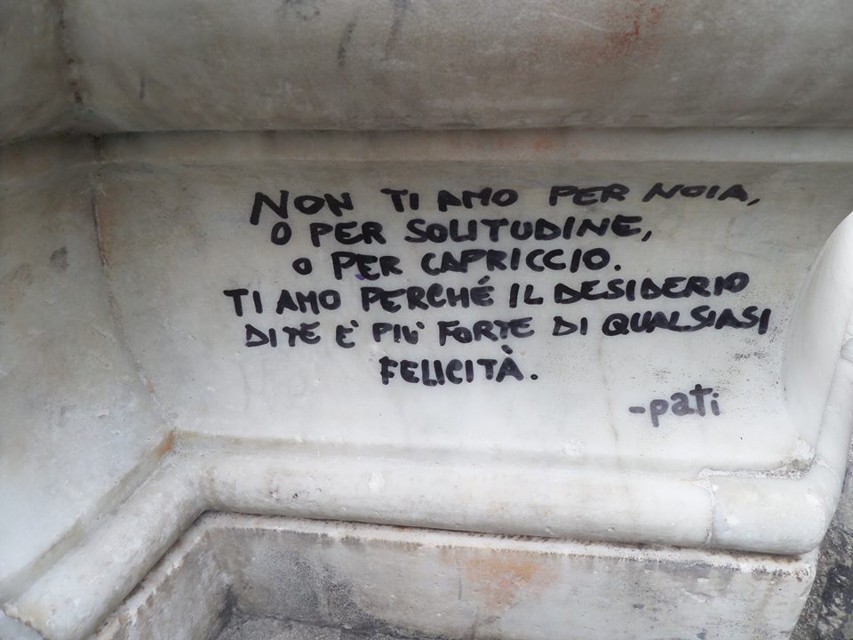 NON TI AMO PER NOIA,
O PER SOLITUDINE,
O PER CAPRICCIO.
TI AMO PERCHÉ IL DESIDERIO
DI TE E' PIU' FORTE DI QUALSIASI
FELICITÀ.
-pati